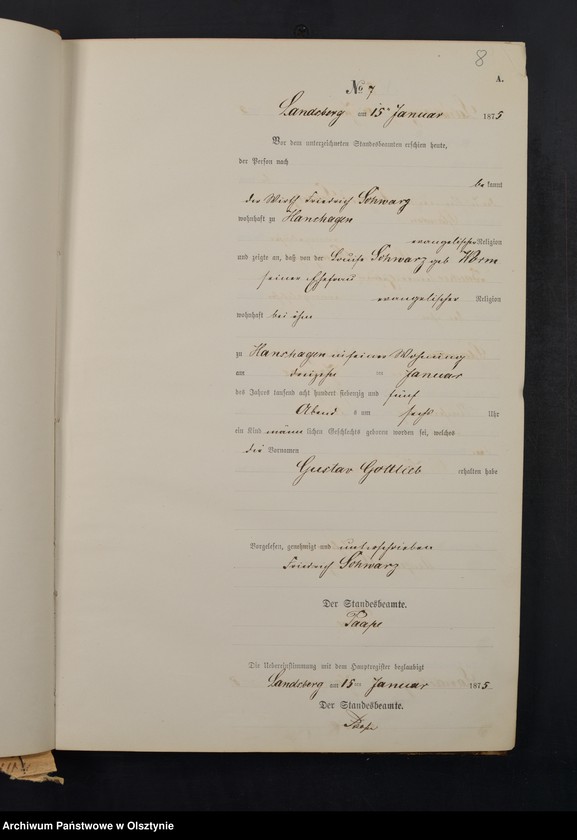 8
A.
No 7
Landsberg am 15ten Januar 1875
Vor dem unterzeichneten Standesbeamten erschien heute,
der Person nach
bekannt
der Wirth Friedrich Schwarz
wohnhaft zu Hanshagen
evangelischer Religion
und zeigte an, daß von der Louise Schwarz geb
seiner Ehefrau
evangelischer Religion
wohnhaft bei ihm
zu Hanshagen in seiner Wohnung
am dreizehn ten Januar
des Jahres tausend acht hundert siebenzig und fünf
Abend s um sechs Uhr
ein Kind männlichen Geschlechts geboren worden sei, welches
die Vornamen
Gustav Gottlieb erhalten habe
Vorgelesen, genehmigt und unterschrieben
Friedrich Schwarz
Der Standesbeamte.
Paape
Die Uebereinstimmung mit dem Hauptregister beglaubigt
Landsberg am 15ten Januar 1875.
Der Standesbeamte.
Paape
Archiwum Państwowe w Olsztynie